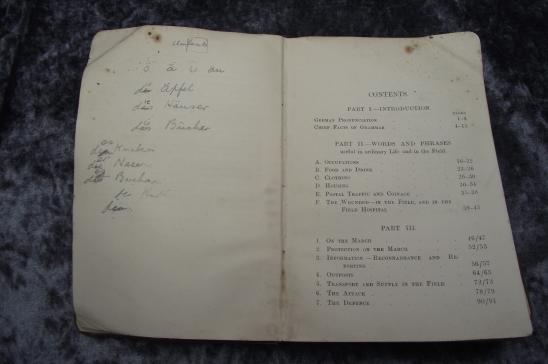 Umlaut
ö ä ü äu
die Äpfel
die Häuser
die Bücher
CONTENTS.
PART I.—INTRODUCTION.
PAGES
GERMAN PRONUNCIATION 1-3
CHIEF FACTS OF GRAMMAR 4-15
PART II.—WORDS AND PHRASES
useful in ordinary Life and in the Field.
A. OCCUPATIONS
B. FOOD AND DRINK
C. CLOTHING
D. HOUSING
E. POSTAL TRAFFIC AND COINAGE
F. THE WOUNDED—IN THE FIELD, AND IN THE
FIELD HOSPITAL
PART III.
1. ON THE MARCH 46/47
2. PROTECTION ON THE MARCH 52/53
3. INFORMATION—RECONNAISSANCE AND RE-
PORTING 56/57
4. OUTPOSTS 64/65
5. TRANSPORT AND SUPPLY IN THE FIELD 72/73
6. THE ATTACK 78/79
7. THE DEFENCE 90/91